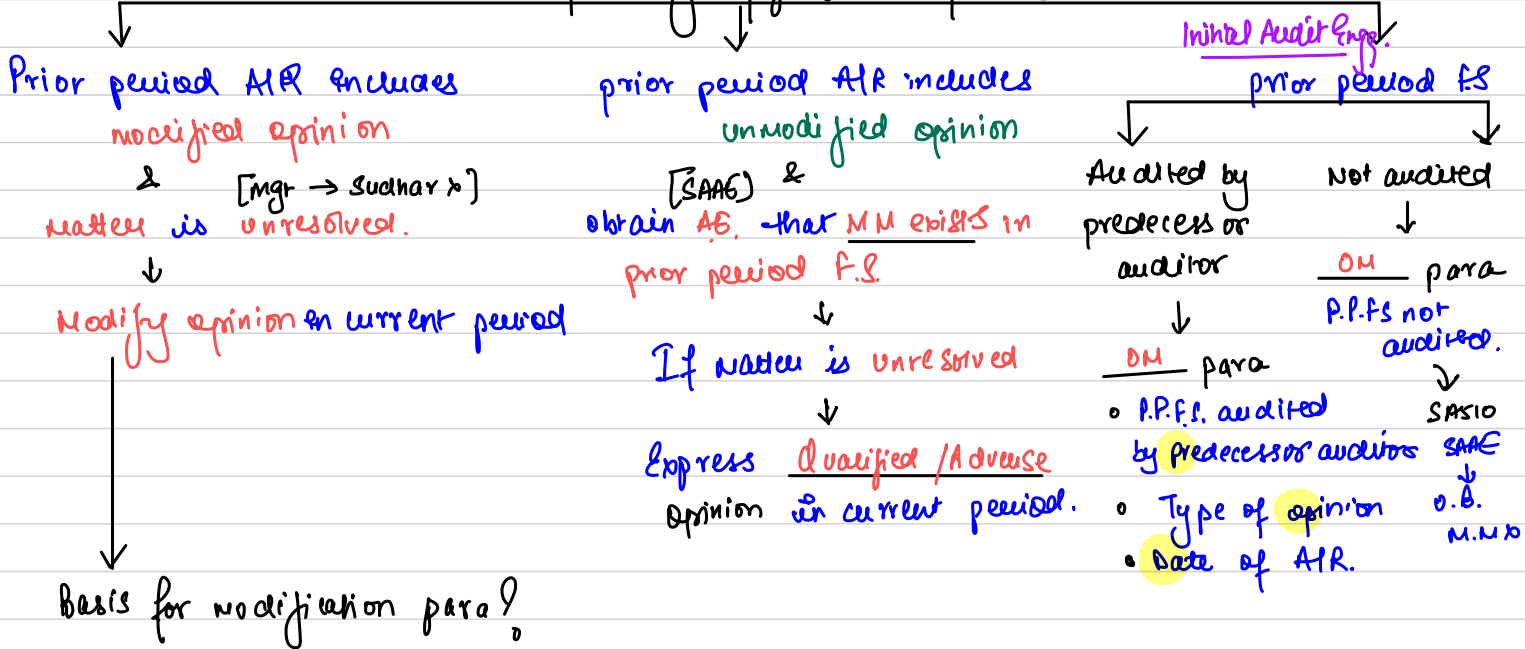 Prior period A/R includes
modified opinion
&
[Mgr → Sudhar x]
matter is unresolved.
Modify opinion in current period
Basis for modification para?
prior period A/R includes
unmodified opinion
[SAAE] &
obtain AE, that MM exists in
prior period F.S.
If matter is unresolved
Express Qualified/Adverse
opinion in current period.
Initial Audit Engg.
prior period F.S
Audited by
predecessor
auditor
OM para
• P.P.F.S. audited
by predecessor auditor
• Type of opinion
• Date of A/R.
Not audited
OM para
P.P.FS not
audited.
SA510
SAAE
O.B.
M.M x